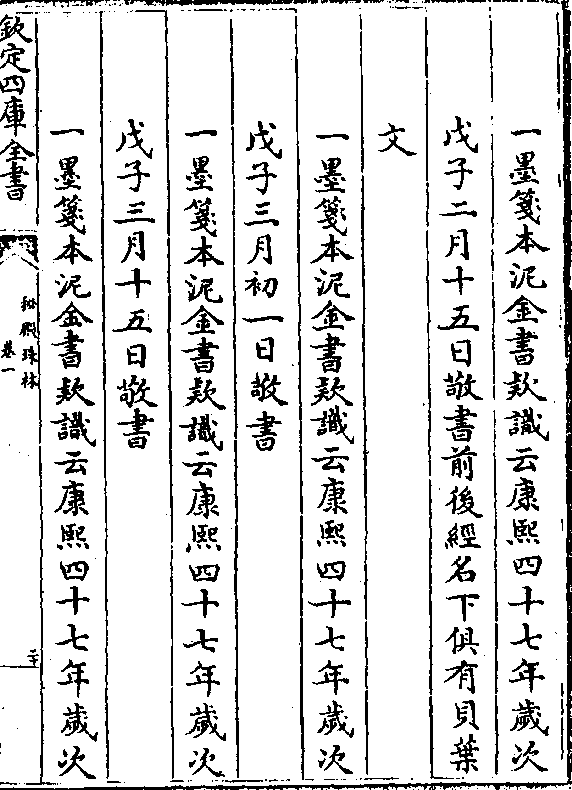 一墨箋本泥金書欵識云康熙四十七年歲次
戊子二月十五日敬書前後經名下俱有貝葉
文
一墨箋本泥金書欵識云康熙四十七年歲次
戊子三月初一日敬書
一墨箋本泥金書欵識云康熙四十七年歲次
戊子三月十五日敬書
一墨箋本泥金書欵識云康熙四十七年歲次
欽定四庫全書
秘殿珠林
卷一
二十